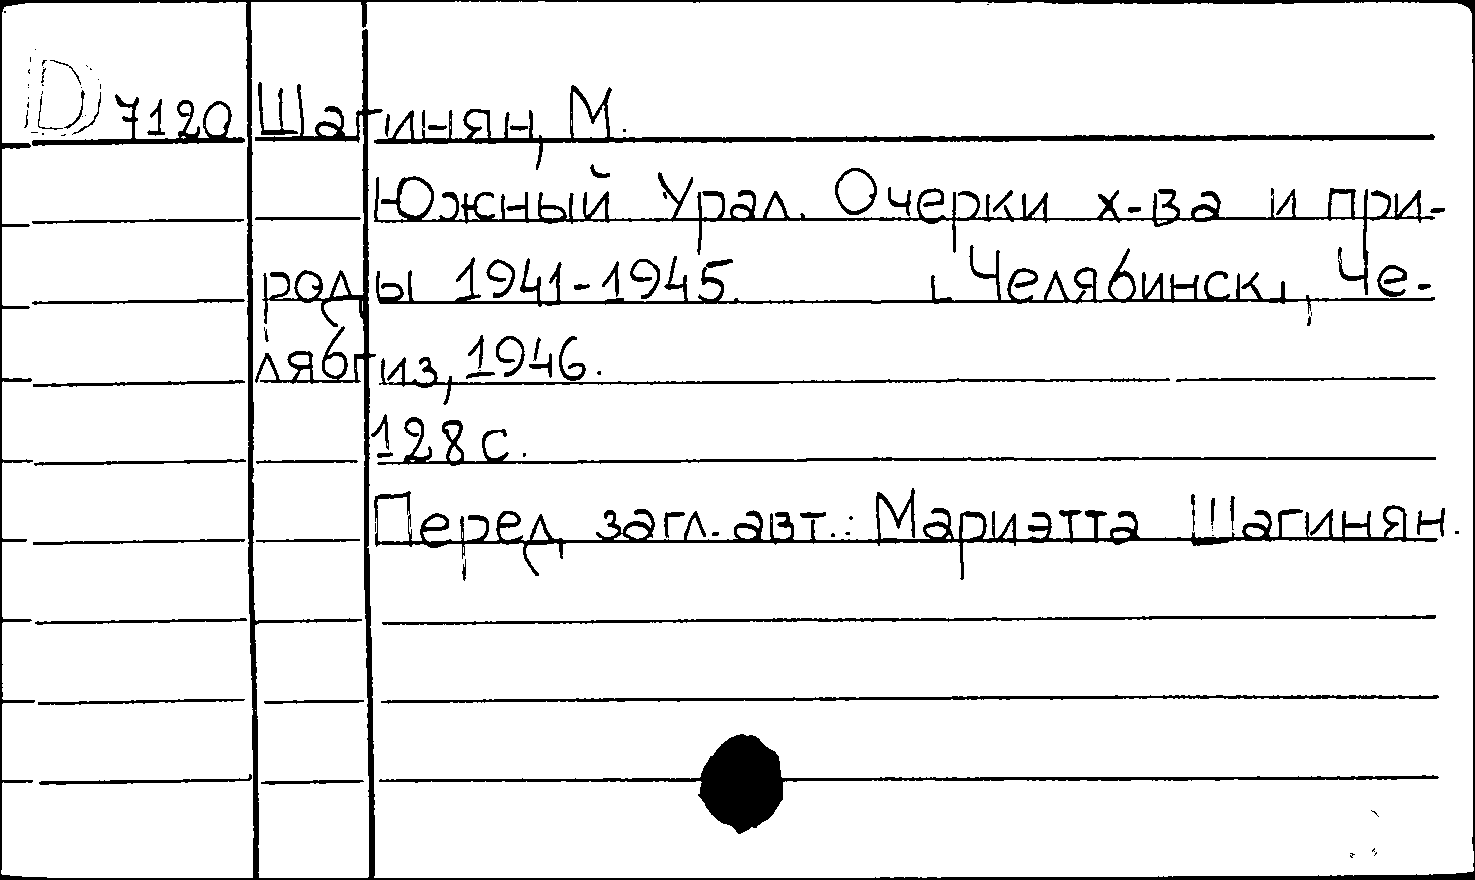 D 7120 Шагинян, М.
Южный Урал. Очерки х-ва и при-
роды 1941-1945. [Челябинск], Че-
лябгиз, 1946.
128 с.
Перед загл. авт.: Мариэтта Шагинян.